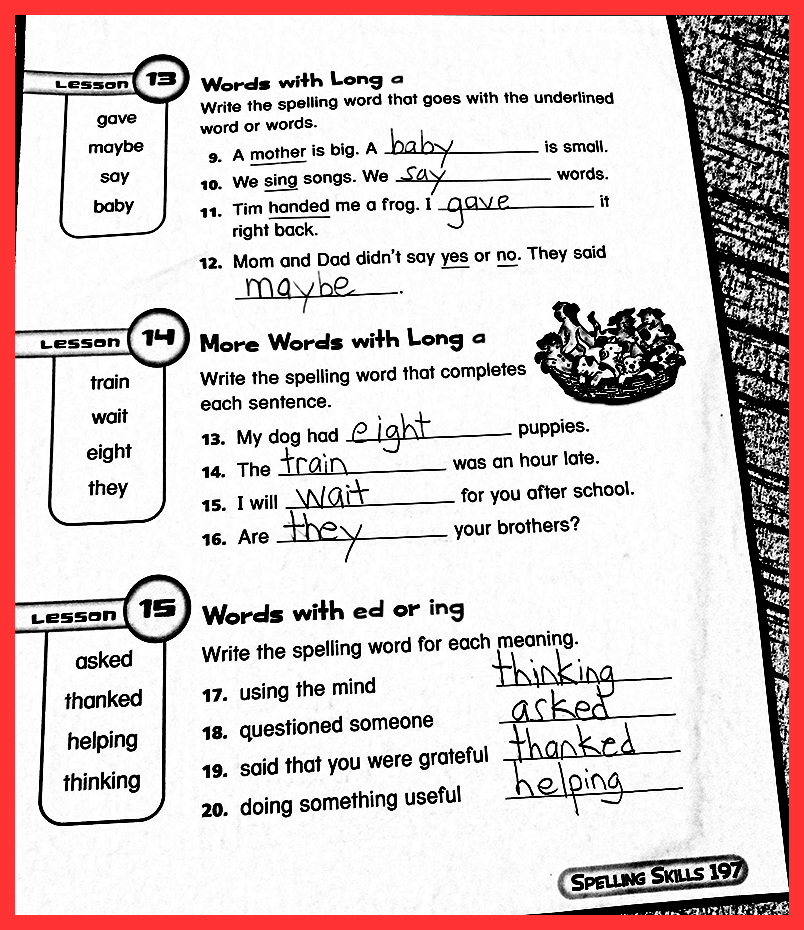 Lesson 13 Words with Long a
gave
maybe
say
baby
Write the spelling word that goes with the underlined
word or words.
9. A mother is big. A baby is small.
10. We sing songs. We say words.
11. Tim handed me a frog. I gave it
right back.
12. Mom and Dad didn't say yes or no. They said
maybe.
Lesson 14 More Words with Long a
train
wait
eight
they
Write the spelling word that completes
each sentence.
13. My dog had eight puppies.
14. The train was an hour late.
15. I will wait for you after school.
16. Are they your brothers?
Lesson 15 Words with ed or ing
asked
thanked
helping
thinking
Write the spelling word for each meaning.
17. using the mind thinking
18. questioned someone asked
19. said that you were grateful thanked
20. doing something useful helping
Spelling Skills 197